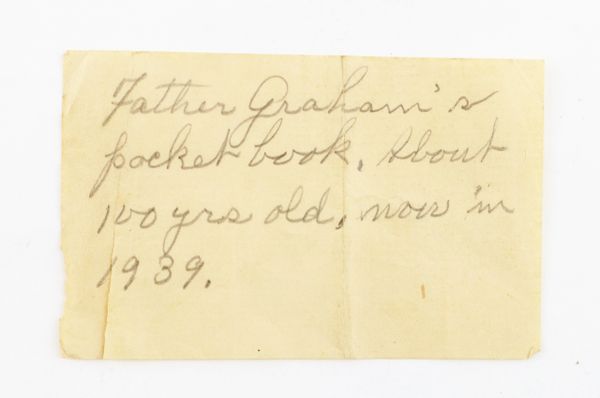 Father Graham's
pocket book. About
100 yrs old, now in
1939.